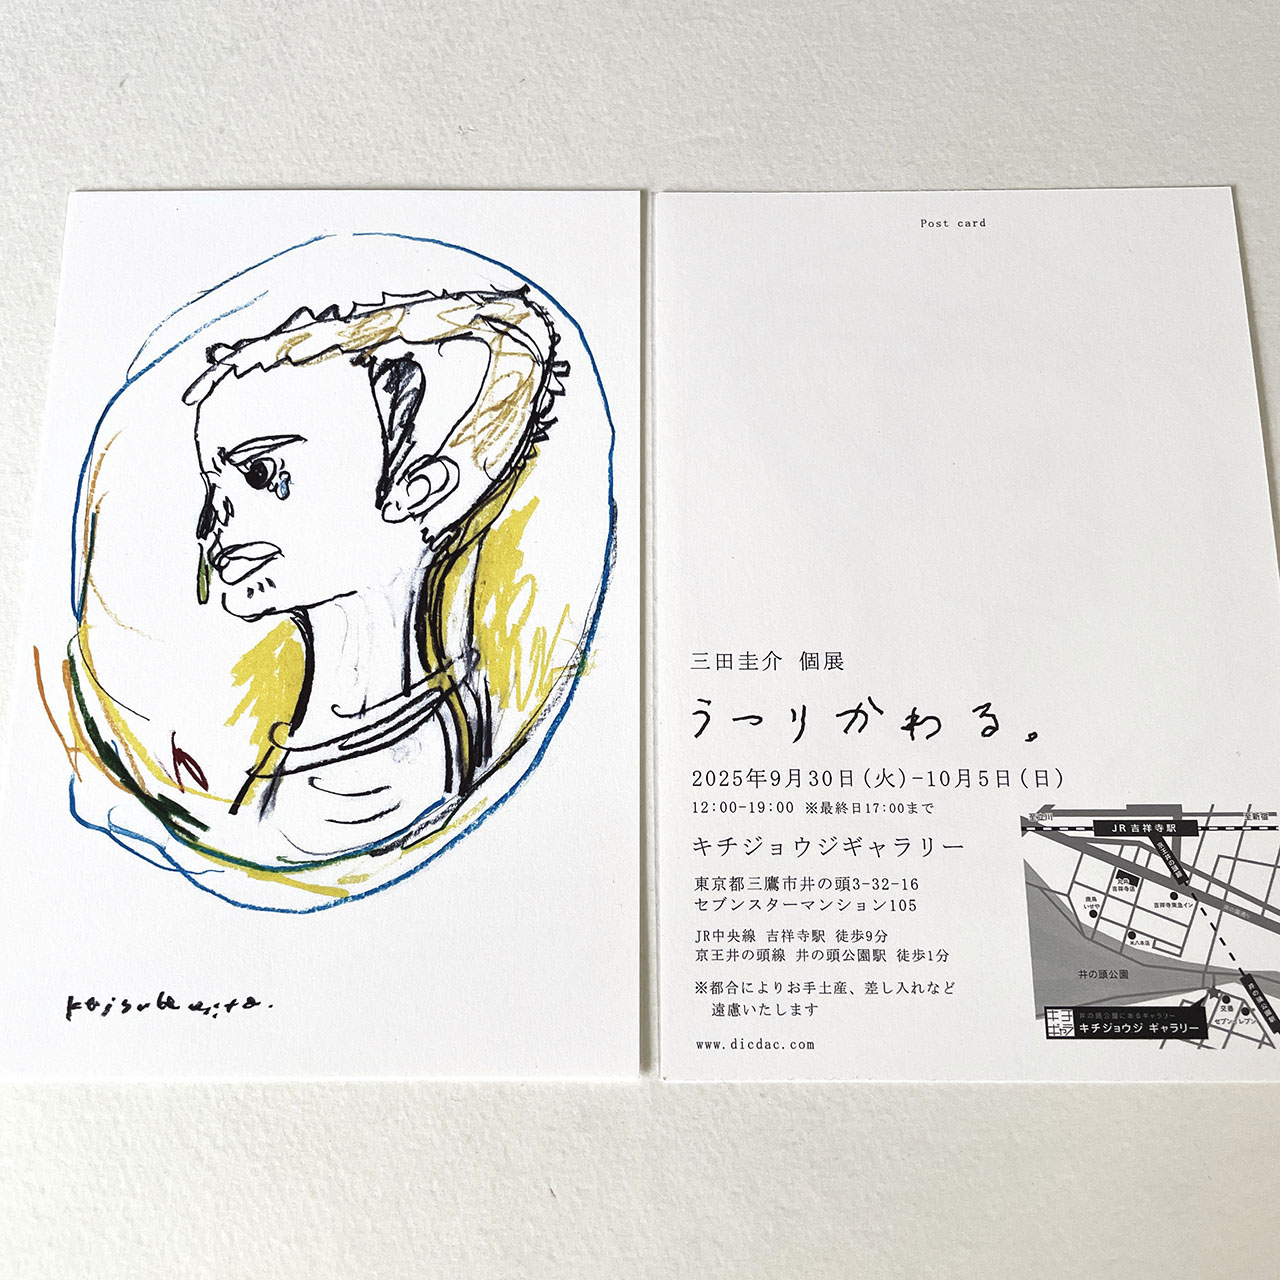 Keisuke mita.
Post card
三田圭介 個展
うつりかわる。
2025年9月30日(火)-10月5日(日)
12:00-19:00 ※最終日17:00まで
キチジョウジギャラリー
東京都三鷹市井の頭3-32-16
セブンスターマンション105
JR中央線 吉祥寺駅 徒歩9分
京王井の頭線 井の頭公園駅 徒歩1分
※都合によりお手土産、差し入れなど
遠慮いたします
www.dicdac.com
至立川
至新宿
JR 吉祥寺駅
吉祥寺店
吉祥寺東急イン
いせや
井の頭公園
交番
セブンイレブン
井の頭公園にあるギャラリー
キチジョウジ ギャラリー
キチ
ギャラ